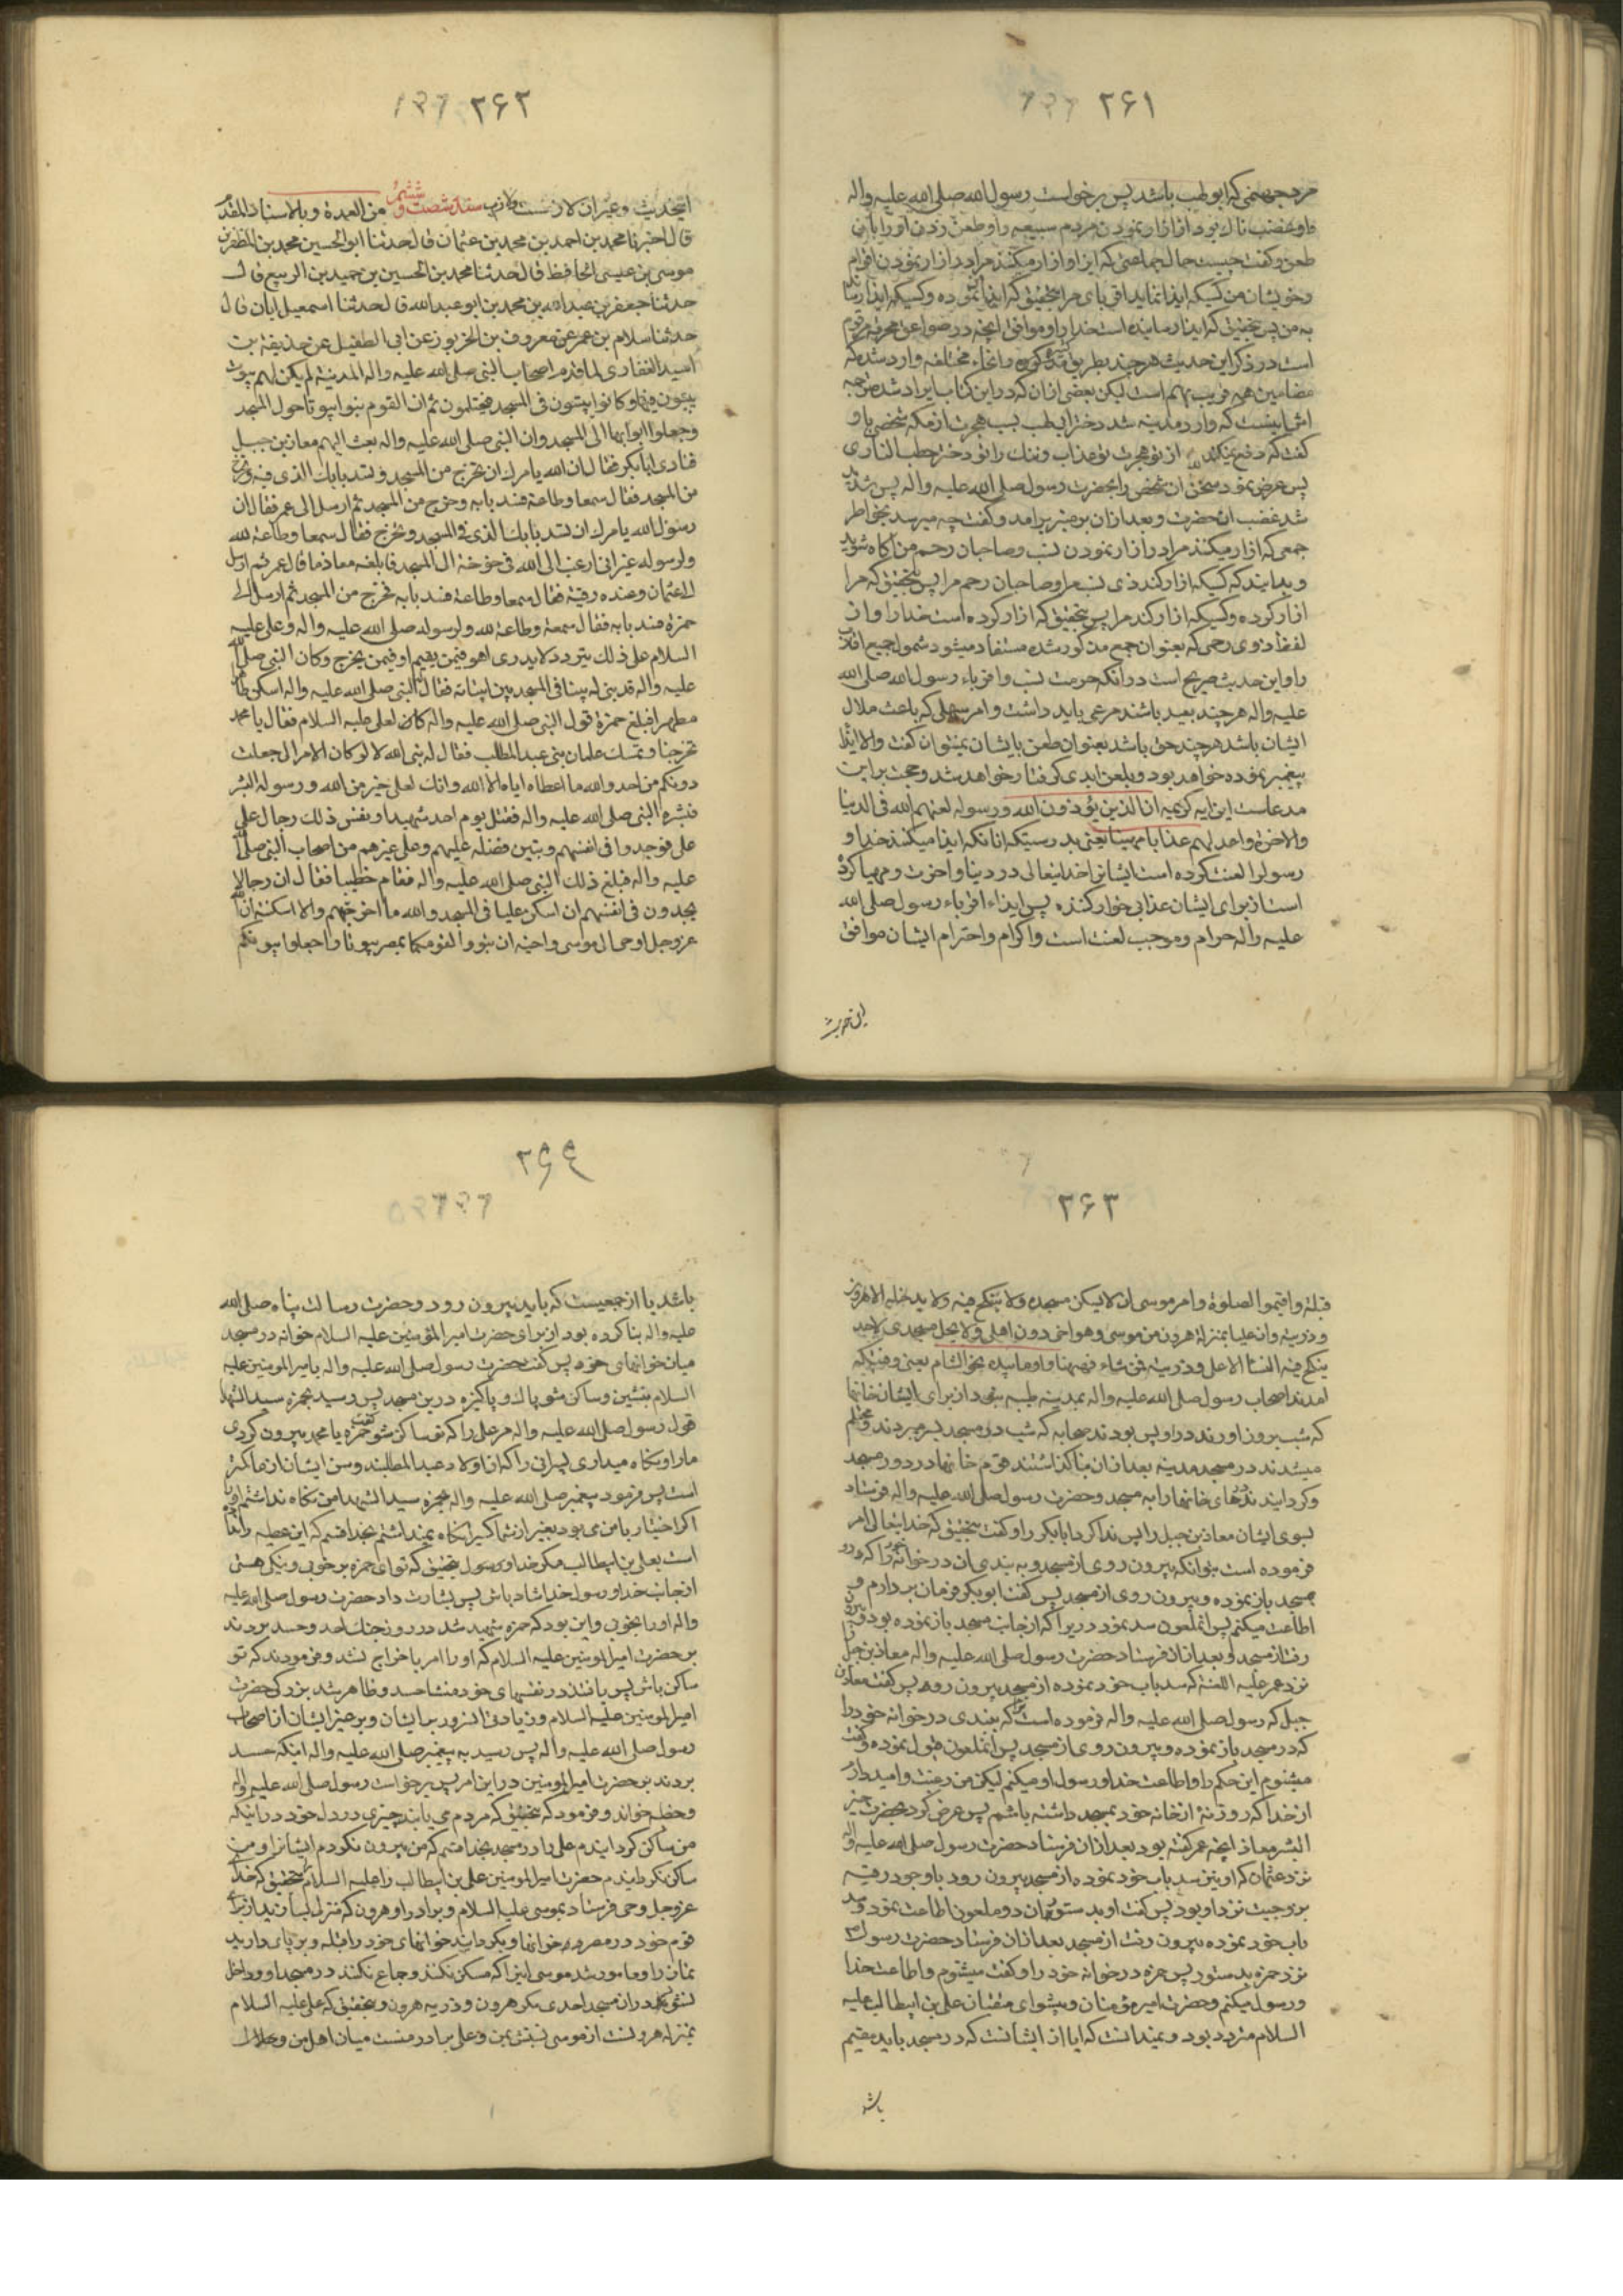 ۲۶۱
مرد جهنمی که ابو لهب باشد پس برخواست رسول الله صلی الله علیه واله
و غضب ناک بود از ازار نمودن مردم سبیعه را و طعن زدن او را باین
طعن و گفت چیست حال جماعتی که ازار میکنند مرا در ازار نمودن اقوام
و خویشان من کسیکه ایذا نماید اقربای مرا بتحقیق که ایذا نموده و کسیکه ایذا رساند
به من پس بتحقیق که ایذا رسانیده است خدا را و موافق انچه در صواعق محرقه مرقوم
است در ذکر این حدیث هر چند بطریق مذکوره و انحاء مختلفه وارد شده که
مضامین همه قریب بهم است لیکن بعضی ازان که در این کتاب ایراد شده ترجمه
اش اینست که وارد مدینه شد دختر ابی لهب بسبب هجرت از مکه شخصی باو
گفت که دفع نمیکند از تو هجرت تو عذاب و ننک را تو دختر حطب الناری
پس عرض نمود سخن ان شخص را بحضرت رسول صلی الله علیه واله پس شدید
شد غضب انحضرت و بعد ازان بر منبر برامد و گفت چه میرسد بخواطر
جمعی که ازار میکنند مرا در ازار نمودن نسب و صاحبان رحم من اکاه شوید
و بدانید که کسیکه ازار کند ذی نسب مرا و صاحبان رحم مرا پس بتحقیق که مرا
ازار کرده و کسیکه ازار کند مرا پس بتحقیق که ازار کرده است خدا را و از
لفظ ذوی رحمی که بعنوان جمع مذکور شده مستفاد میشود شمول جمیع اقارب
را و این حدیث صریح است در انکه حرمت نسب و اقرباء رسول الله صلی الله
علیه واله هر چند بعید باشند مرعی باید داشت و امر سهلی که باعث ملال
ایشان باشد هر چند حق باشد بعنوان طعن بایشان نمیتوان گفت والا ایذا
پیغمبر نموده خواهد بود و بلعن ابدی گرفتار خواهد شد و حجت بر این
مدعاست این ایه کریمه ان الذین یؤذون الله و رسوله لعنهم الله فی الدنیا
والاخرة واعد لهم عذابا مهینا یعنی بدرستیکه انانکه ایذا میکنند خدا و
رسول را لعنت کرده است ایشانرا خدایتعالی در دنیا و اخرت و مهیا کرده
است از برای ایشان عذابی خوار کننده پس ایذاء اقرباء رسول صلی الله
علیه واله حرام و موجب لعنت است و اکرام و احترام ایشان موافق
این حدیث
۲۶۲
اینحدیث و غیر ان لازمست ولازم سند شصت و ششم من العمدة و بالاسناد المقدم
قال اخبرنا محمد بن احمد بن محمد بن عثمان قال حدثنا ابو الحسین محمد بن المظفر بن
موسی بن عیسی الحافظ قال حدثنا محمد بن الحسین بن حمید بن الربیع قال
حدثنا جعفر بن عبدالله بن محمد بن ابو عبدالله قال حدثنا اسمعیل ابان قال
حدثنا سلام بن عمر عن معروف بن الخربوز عن ابی الطفیل عن حذیفة بن
اسید الغفاری لما قدم اصحاب النبی صلی الله علیه واله المدینة لم یکن لهم بیوت
یبیتون فیها و کانوا یبیتون فی المسجد فیحتلمون ثم ان القوم بنوا بیوتا حول المسجد
وجعلوا ابوابها الی المسجد وان النبی صلی الله علیه واله بعث الیهم معاذ بن جبل
فنادی ابابکر فقال ان الله یامرک ان تخرج من المسجد و تسد بابک الذی فیه وتخرج
من المسجد فقال سمعا وطاعة فسد بابه وخرج من المسجد ثم ارسل الی عمر فقال ان
رسول الله یامرک ان تسد بابک الذی فی المسجد وتخرج فقال سمعا وطاعة لله
ولرسوله غیر انی ارغب الی الله فی خوخة الی المسجد فابلغه معاذ ما قال عمر ثم ارسل
الی عثمان وعنده رقیه فقال سمعا وطاعة فسد بابه وخرج من المسجد ثم ارسل الی
حمزة فسد بابه فقال سمعة وطاعة لله ولرسوله صلی الله علیه واله وعلی علیه
السلام علی ذلک یتردد لا یدری اهو فیمن یقیم او فیمن یخرج وکان النبی صلی الله
علیه واله قد بنی له بیتا فی المسجد بین ابیاته فقال النبی صلی الله علیه واله اسکن طاهرا
مطهرا فبلغ حمزة قول النبی صلی الله علیه واله کان لعلی علیه السلام فقال یا محمد
تخرجنا وتمسک غلمان بنی عبد المطلب فقال له نبی الله لا لو کان الامر الی جعلت
دونکم من احد والله ما اعطاه ایاه الا الله وانک لعلی خیر من الله ورسوله ابشر
فبشره النبی صلی الله علیه واله فقتل یوم احد شهیدا ونفس ذلک رجال علی
علی فوجدوا فی انفسهم وتبین فضله علیهم وعلی غیرهم من اصحاب النبی صلی الله
علیه واله فبلغ ذلک النبی صلی الله علیه واله فقام خطیبا فقال ان رجالا
یجدون فی انفسهم ان اسکن علیا فی المسجد والله ما اخرجتهم ولا اسکنته ان الله
عز وجل اوحی الی موسی واخیه ان تبوءا لقومکما بمصر بیوتا واجعلوا بیوتکم
۲۶۳
قبلة واقیموا الصلوة وامر موسی ان لا یسکن مسجده ولا ینکح فیه ولا یدخله الا هرون
وذریته وان علیا بمنزلة هرون من موسی وهو اخی دون اهلی ولا یحل مسجدی لاحد
ینکح فیه النساء الا علی وذریته فمن شاء فههنا واوما بیده نحو الشام یعنی وقتیکه
امدند اصحاب رسول صلی الله علیه واله بمدینه طیبه نبود از برای ایشان خانها
که شب برون اورند دراو پس بودند صحابه که شب در مسجد بسر میبردند و محتلم
میشدند در مسجد مدینه بعد ازان بنا کذاشتند قوم خانها در دور مسجد
و کردانیدند درهای خانها را به مسجد و حضرت رسول صلی الله علیه واله فرستاد
بسوی ایشان معاذ بن جبل را پس ندا کرد ابابکر را و گفت بتحقیق که خدایتعالی امر
فرموده است بتو انکه بیرون روی از مسجد و به بندی ان در خوانه خود را که در
مسجد باز نموده و بیرون روی از مسجد پس گفت ابوبکر فرمان بردارم و
اطاعت میکنم پس انملعون سد نمود دریرا که از جانب مسجد باز نموده بود و بیرون
رفت از مسجد و بعد ازان فرستاد حضرت رسول صلی الله علیه واله معاذ بن جبل را
نزد عمر علیه اللعنة که سد باب خود نموده از مسجد بیرون رود پس گفت معاذ بن
جبل که رسول صلی الله علیه واله فرموده است ترا که ببندی در خوانه خود را
که در مسجد باز نموده و بیرون روی از مسجد پس انملعون قبول نموده و گفت
میشنوم این حکم را و اطاعت خدا و رسول او میکنم لیکن من رغبت و امید دارم
از خدا که روزنهٔ از خانه خود بمسجد داشته باشم پس عرض کرد بحضرت خیر
البشر معاذ انچه عمر گفته بود بعد ازان فرستاد حضرت رسول صلی الله علیه واله
نزد عثمان که او نیز سد باب خود نموده از مسجد بیرون رود با وجود رقیه
بزوجیت نزد او بود پس گفت او بدستور ان دو ملعون اطاعت نمود و سد
باب خود نموده بیرون رفت از مسجد بعد ازان فرستاد حضرت رسول ص
نزد حمزه بدستور پس حمزه در خوانه خود را و گفت میشنوم و اطاعت خدا
و رسول میکنم و حضرت امیر مؤمنان و پیشوای متقیان علی بن ابیطالب علیه
السلام متردد بود و نمیدانست که ایا از ایشانست که در مسجد باید مقیم
باشد
۲۶۴
باشد یا از جمعیست که باید بیرون رود و حضرت رسالت پناه صلی الله
علیه واله بنا کرده بود از برای حضرت امیر المؤمنین علیه السلام خوانه در مسجد
میان خوانهای خود پس گفت حضرت رسول صلی الله علیه واله بامیر المومنین علیه
السلام بنشین و ساکن شو پاک و پاکیزه در ین مسجد پس رسید بحمزه سید الشهدا
قول رسول صلی الله علیه واله مر علی را که تو ساکن شو گفت حمزه یا محمد بیرون کردی
ما را و نکاه میداری پسرانی را که از اولاد عبد المطلبند و سن ایشان از ما کمتر
است پس فرمود پیغمبر صلی الله علیه واله بحمزه سید الشهدا من نکاه نداشتم او را
اکر اختیار با من می بود بغیر از شما کسیرا نکاه نمیداشتم بخدا قسم که این عطیه را خدا
است بعلی بن ابیطالب مکر خدا و رسول بتحقیق که تو ای حمزه بر خوبی و نیکی هستی
از جانب خدا و رسول خدا شاد باش پس بشارت داد حضرت رسول صلی الله علیه
واله او را بخوبی و این بود که حمزه شهید شد در روز جنک احد و حسد بردند
بر حضرت امیر المومنین علیه السلام که او را امر باخراج نشد و فرمودند که تو
ساکن باش پس یافتند در نفسهای خود منشا حسد و ظاهر شد بزرکی حضرت
امیر المومنین علیه السلام و زیادتی انسرور بر ایشان و بر غیر ایشان از اصحاب
رسول صلی الله علیه واله پس رسید به پیغمبر صلی الله علیه واله اینکه حسد
بردند بر حضرت امیر المومنین در این امر پس برخواست رسول صلی الله علیه واله
و خطبه خواند و فرمود که بتحقیق که مردم می یابند چیزی در دل خود در اینکه
من ساکن کردانیدم علی را در مسجد بخدا قسم که من بیرون نکردم ایشانرا و من
ساکن نکردانیدم حضرت امیر المومنین علی بن ابیطالب را علیه السلام بتحقیق که خدای
عز وجل وحی فرستاد بموسی علیه السلام و برادر او هرون که منزل بسازید از برای
قوم خود در مصر خوانها و بکردانید خوانهای خود را قبله و بر پای دارید
نماز را و مامور شد موسی اینرا که مسکن نکند و جماع نکنند در مسجد او و داخل
نشود دران مسجد احدی مکر هرون و ذریه هرون و بتحقیق که علی علیه السلام
بمنزله هرونست از موسی نسبتش بمن و علی برادر منست میان اهل من و حلال